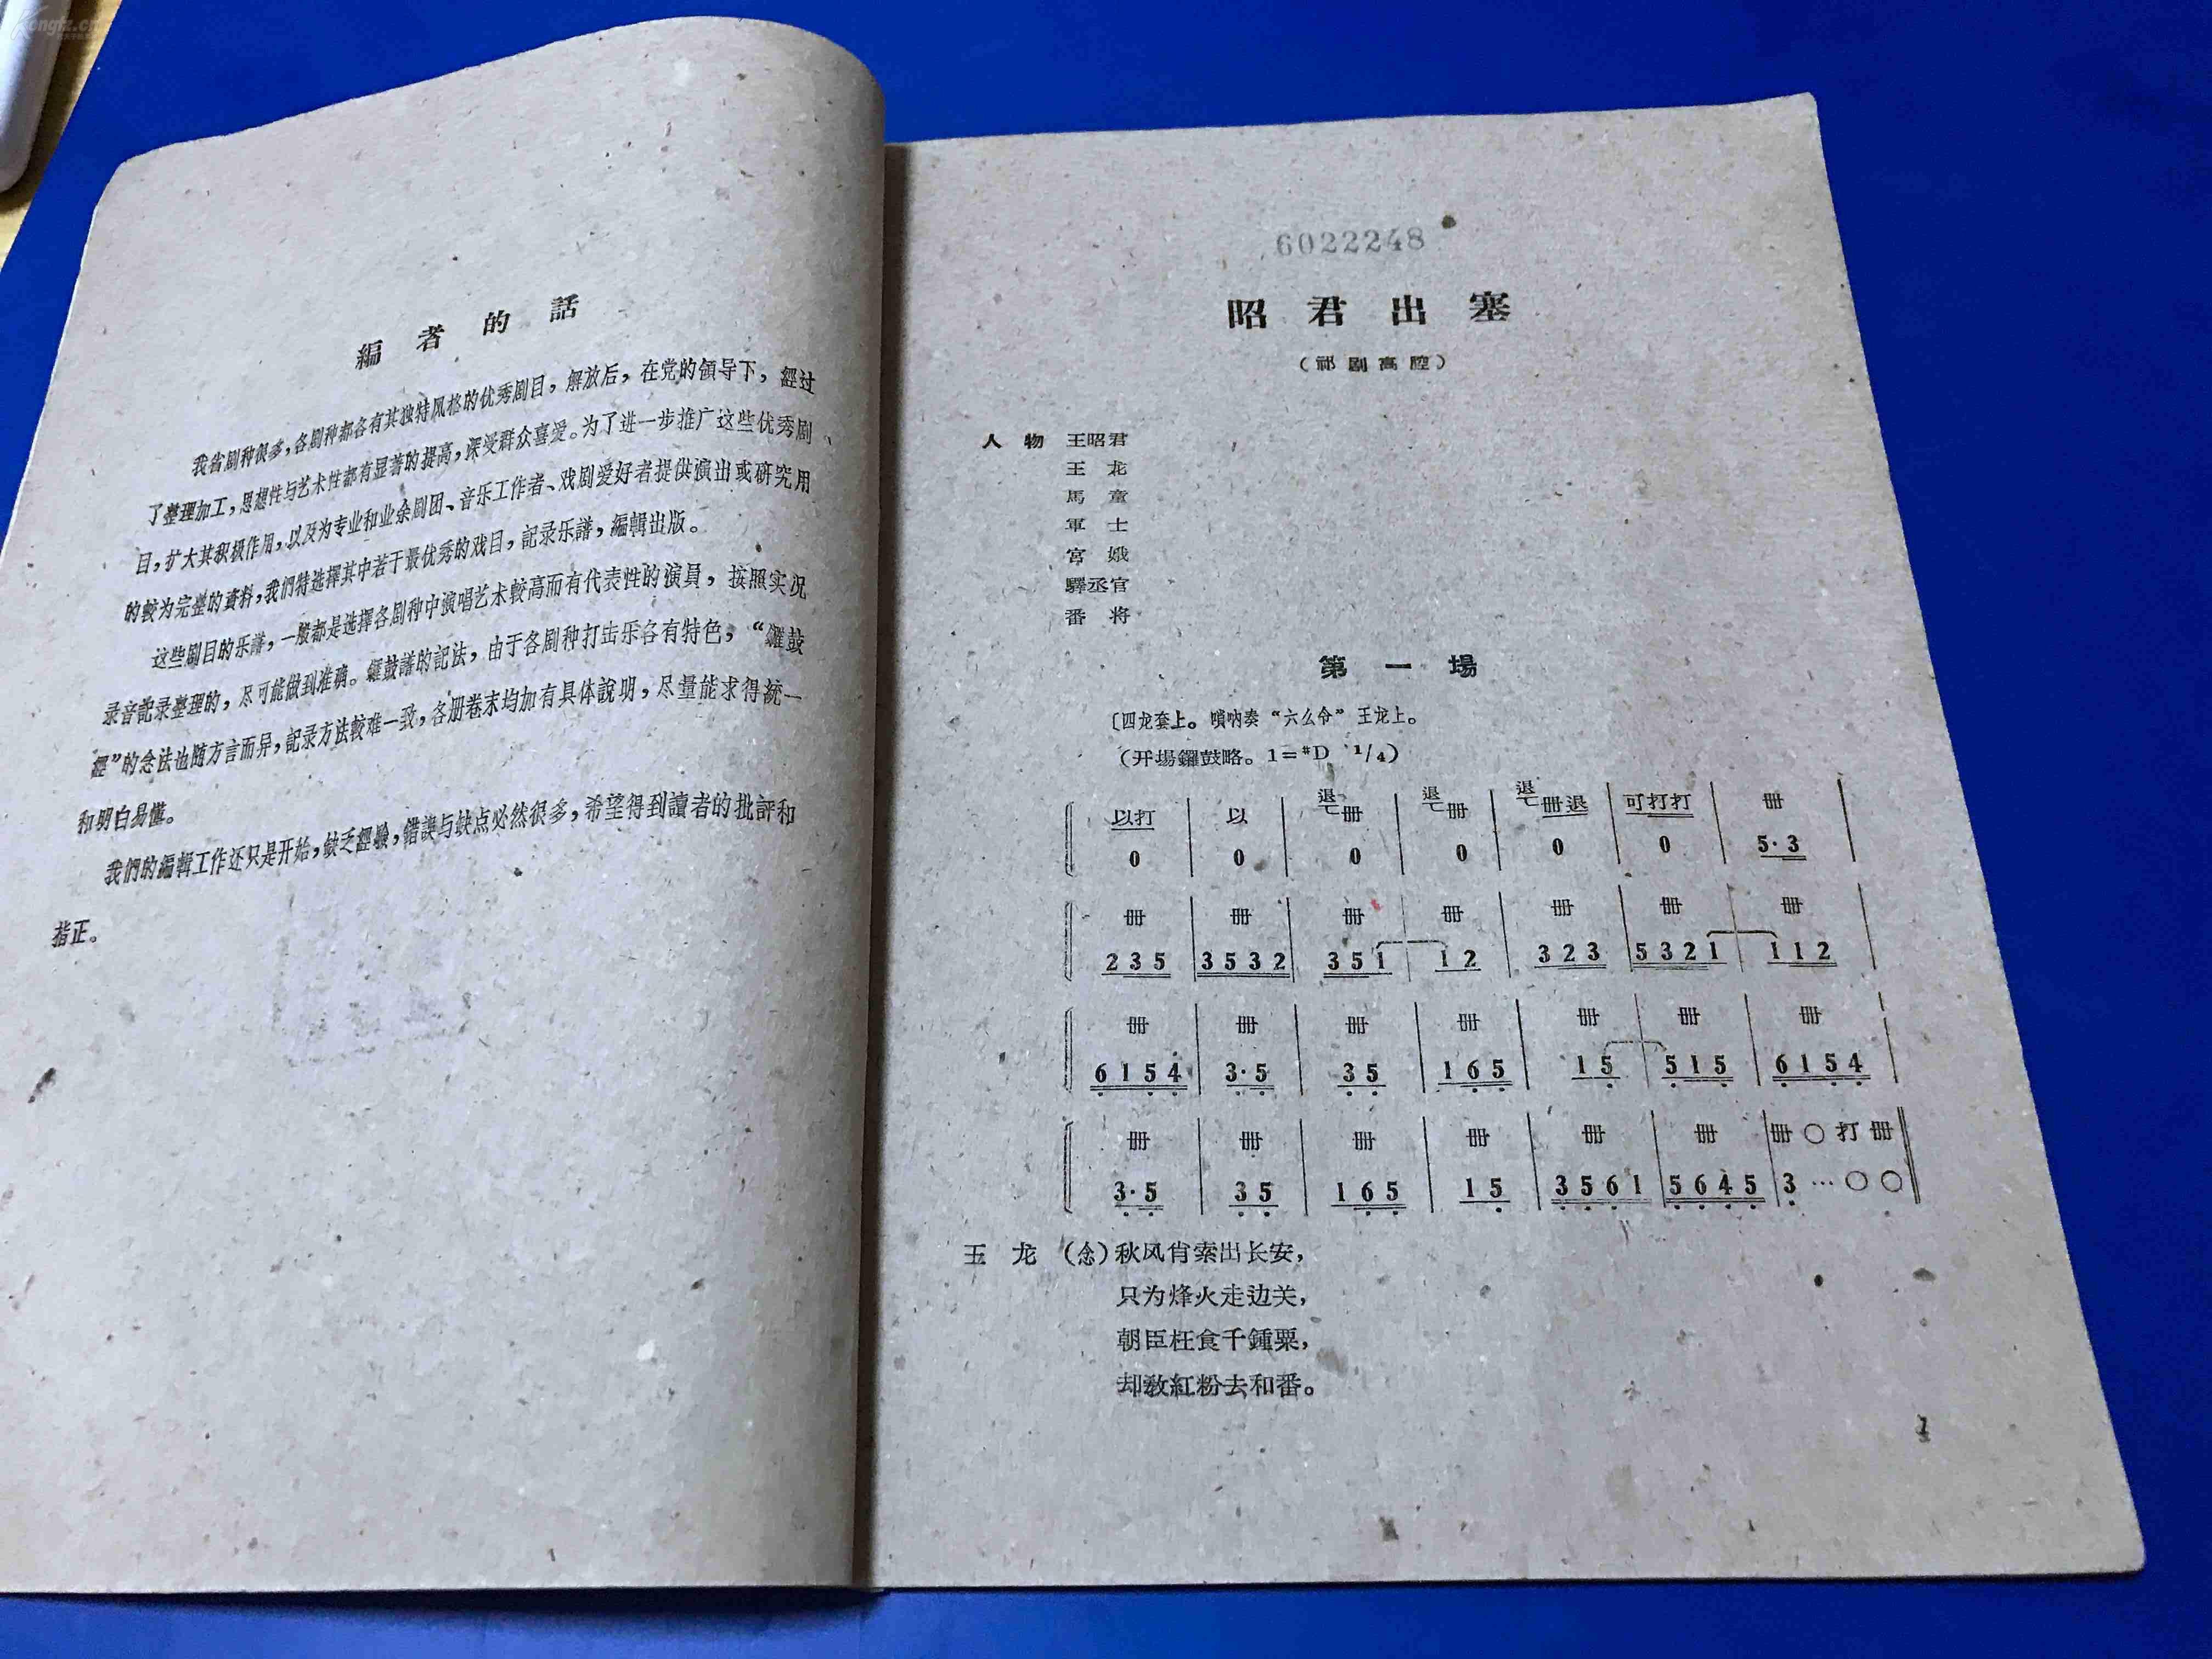 編者的話
我省剧种很多，各剧种都各有其独特风格的优秀剧目，解放后，在党的領导下，經过
了整理加工，思想性与艺术性都有显著的提高，深受群众喜爱。为了进一步推广这些优秀剧
目，扩大其积极作用，以及为专业和业余剧团、音乐工作者、戏剧爱好者提供演出或研究用
的較为完整的資料，我們特选擇其中若干最优秀的戏目，記录乐譜，編輯出版。
这些剧目的乐譜，一般都是选擇各剧种中演唱艺术較高而有代表性的演員，按照实况
录音記录整理的，尽可能做到准确。鑼鼓譜的記法，由于各剧种打击乐各有特色，“鑼鼓
經”的念法也随方言而异，記录方法較难一致，各册卷末均加有具体說明，尽量能求得統一
和明白易懂。
我們的編輯工作还只是开始，缺乏經驗，錯誤与缺点必然很多，希望得到讀者的批評和
指正。
6022248
昭君出塞
（祁剧高腔）
人物 王昭君
王龙
馬童
軍士
宮娥
驛丞官
番将
第一場
〔四龙套上。嗩吶奏“六么令”王龙上。
（开場鑼鼓略。1=#D 1/4）
以打 | 以 | 退乙冊 | 退乙冊 | 退乙冊退 | 可打打 | 冊
0 | 0 | 0 | 0 | 0 | 0 | 5·3 |
冊 | 冊 | 冊 | 冊 | 冊 | 冊 | 冊
2 3 5 | 3 5 3 2 | 3 5 1 | 1 2 | 3 2 3 | 5 3 2 1 | 1 1 2 |
冊 | 冊 | 冊 | 冊 | 冊 | 冊 | 冊
6 1 5 4 | 3·5 | 3 5 | 1 6 5 | 1 5 | 5 1 5 | 6 1 5 4 |
冊 | 冊 | 冊 | 冊 | 冊 | 冊 | 冊 〇 打 冊
3·5 | 3 5 | 1 6 5 | 1 5 | 3 5 6 1 | 5 6 4 5 | 3 … 〇 〇
王龙（念）秋风肖索出长安，
只为烽火走边关，
朝臣枉食千鍾粟，
却教紅粉去和番。
1